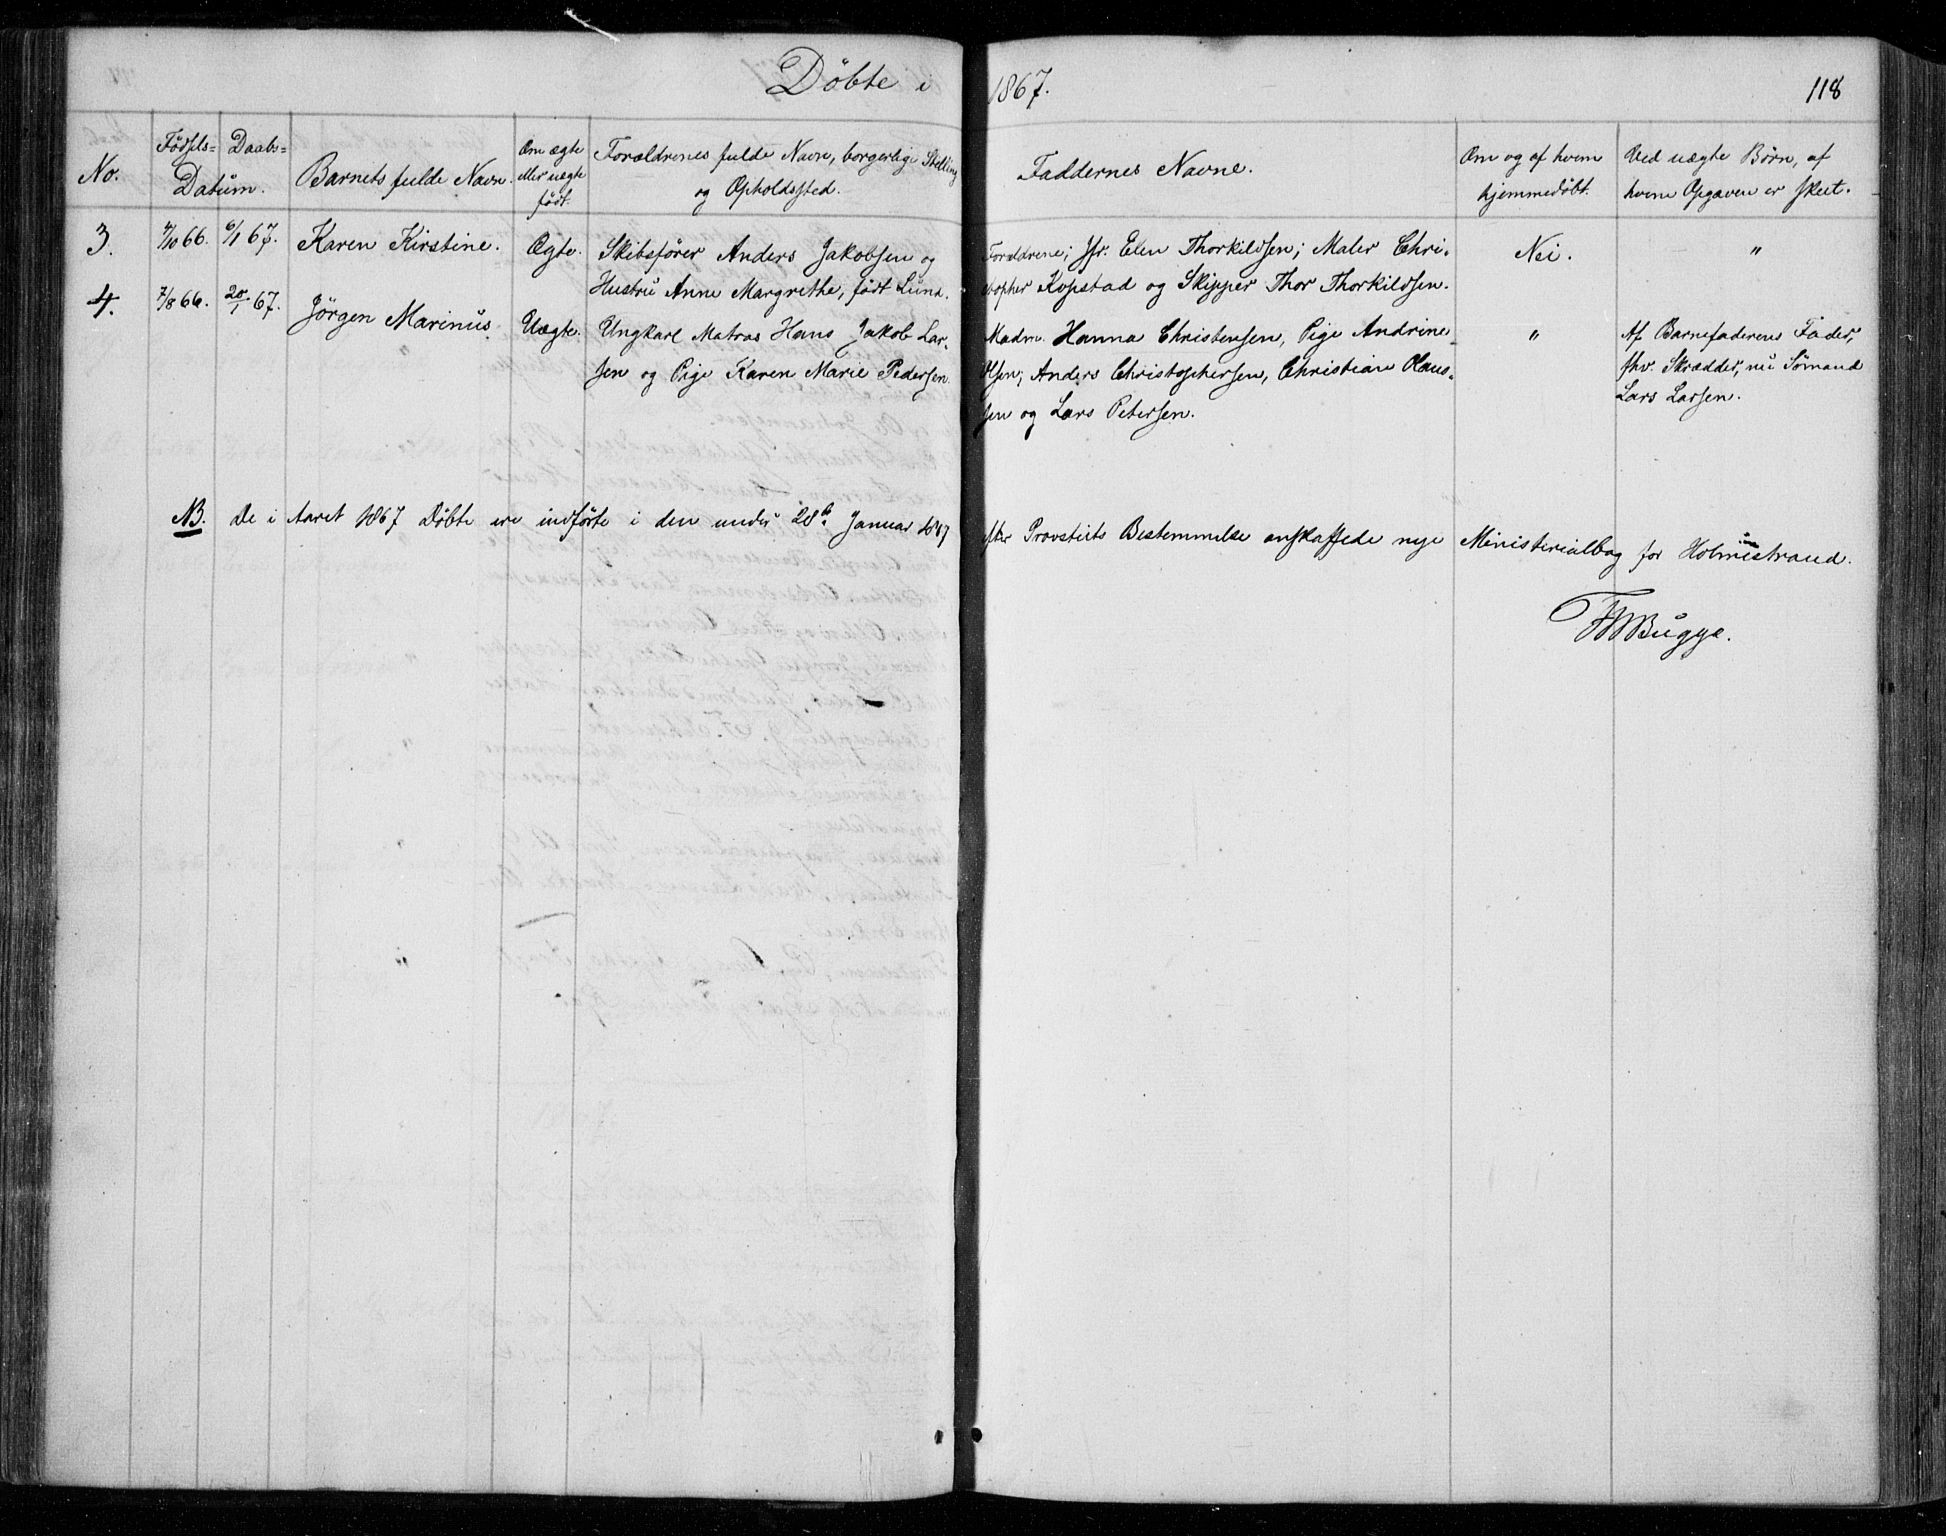 Döbte i 1867. 118
No.
Födsels= Daabs=
Datum.
Barnets fulde Navn.
Om ægte
eller uægte
født.
Forældrenes fulde Navn, borgerlige Stilling
og Opholdssted.
Faddernes Navne.
Om og af hvem
hjemmedöbt.
Ved uægte Börn, af
hvem Opgaven er skeet.
3. /10 66. 6/1 67. Karen Kirstine. Ægte. Skibsförer Anders Jakobsen og
Hustru Anne Margrethe, født Lund.
Forældrene; Jfr. Elen Thorkildsen; Maler Chri-
stopher Kopstad og Skipper Thor Thorkildsen.
Nei. "
4. 7/8 66. 20/1 67. Jörgen Marinus. Uægte. Ungkarl Matros Hans Jakob Lar-
sen og Pige Karen Marie Pedersen.
Madm. Hanna Christensen, Pige Andrine
Olsen; Anders Christophersen, Christian Claus-
sen og Lars Petersen.
" Af Barnefaderens Fader,
fhv. Skrædder, nu Sömand
Lars Larsen.
NB. De i Aaret 1867 Döbte ere indförte i den under 28de Januar 1867
efter Provstiets Bestemmelse anskaffede nye Ministerialbog for Holmestrand.
Bugge.